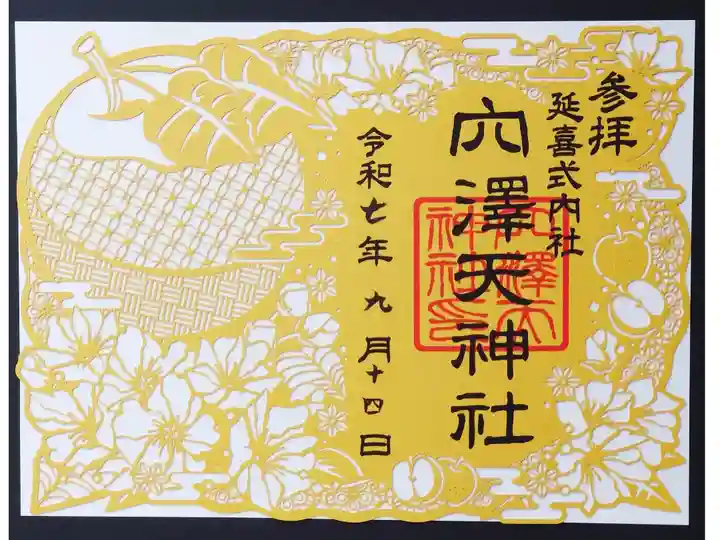 参拝
延喜式内社
穴澤天神社
令和七年九月十四日